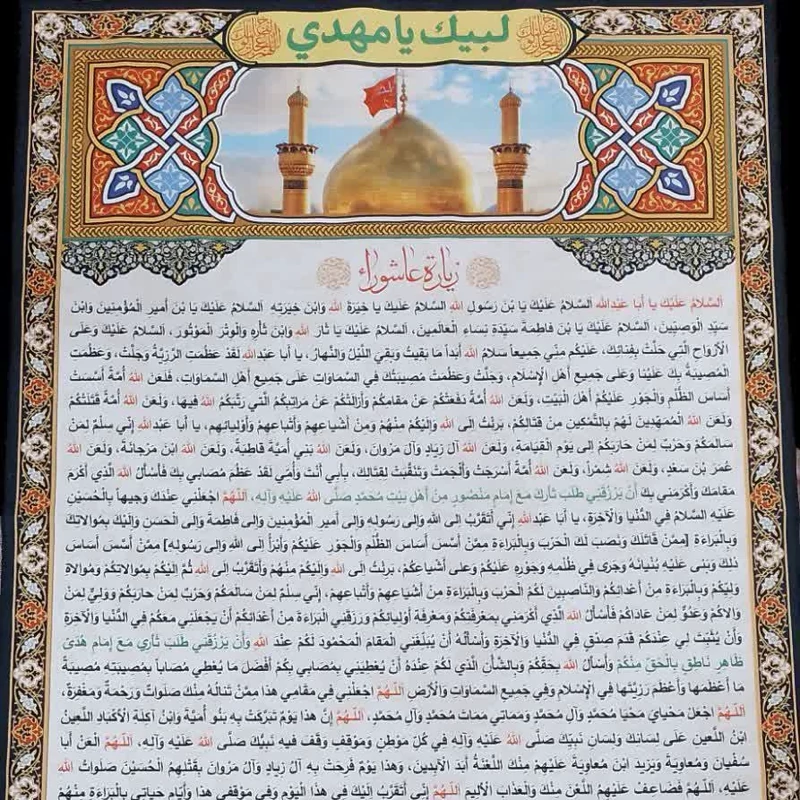 لبيك يا مهدي
زيارة عاشوراء
اَلسَّلامُ عَلَيْكَ يا أبا عَبْدِاللهِ اَلسَّلامُ عَلَيْكَ يَا بْنَ رَسُولِ اللهِ السَّلامُ عَلَيكَ يا خِيَرَةَ اللهِ وَابْنَ خِيَرَتِهِ اَلسَّلامُ عَلَيْكَ يَا بْنَ أميرِ الْمُؤْمِنينَ وَابْنَ
سَيِّدِ الْوَصِيّينَ، اَلسَّلامُ عَلَيْكَ يَا بْنَ فاطِمَةَ سَيِّدَةِ نِساءِ الْعالَمينَ، اَلسَّلامُ عَلَيْكَ يا ثارَ اللهِ وَابْنَ ثارِهِ وَالْوِتْرَ الْمَوْتُورَ، اَلسَّلامُ عَلَيْكَ وَعَلَى
الْأرْواحِ الَّتي حَلَّتْ بِفِنائِكَ، عَلَيْكُم مِنّي جَميعاً سَلامُ اللهِ أبَداً ما بَقيتُ وَبَقِيَ اللَّيْلُ وَالنَّهارُ، يا أبا عَبْدِاللهِ لَقَدْ عَظُمَتِ الرَّزِيَّةُ وَجَلَّتْ، وَعَظُمَتِ
الْمُصيبَةُ بِكَ عَلَيْنا وَعَلى جَميعِ أهْلِ الْإسْلامِ، وَجَلَّتْ وَعَظُمَتْ مُصيبَتُكَ فِي السَّماواتِ عَلى جَميعِ أهْلِ السَّماواتِ، فَلَعَنَ اللهُ أُمَّةً أسَّسَتْ
أساسَ الظُّلْمِ وَالْجَوْرِ عَلَيْكُمْ أهْلَ الْبَيْتِ، وَلَعَنَ اللهُ أُمَّةً دَفَعَتْكُمْ عَنْ مَقامِكُمْ وَأزالَتْكُمْ عَنْ مَراتِبِكُمُ الَّتي رَتَّبَكُمُ اللهُ فيها، وَلَعَنَ اللهُ أُمَّةً قَتَلَتْكُمْ
وَلَعَنَ اللهُ الْمُمَهِّدينَ لَهُمْ بِالتَّمْكينِ مِنْ قِتالِكُمْ، بَرِئْتُ إلَى اللهِ وَإلَيْكُمْ مِنْهُمْ وَمِنْ أشْياعِهِمْ وَأتْباعِهِمْ وَأوْلِيائِهِم، يا أبا عَبْدِاللهِ إنّي سِلْمٌ لِمَنْ
سالَمَكُمْ وَحَرْبٌ لِمَنْ حارَبَكُمْ إلى يَوْمِ الْقِيامَةِ، وَلَعَنَ اللهُ آلَ زِيادٍ وَآلَ مَرْوانَ، وَلَعَنَ اللهُ بَني أُمَيَّةَ قاطِبَةً، وَلَعَنَ اللهُ ابْنَ مَرْجانَةَ، وَلَعَنَ اللهُ
عُمَرَ بْنَ سَعْدٍ، وَلَعَنَ اللهُ شِمْراً، وَلَعَنَ اللهُ أُمَّةً أسْرَجَتْ وَألْجَمَتْ وَتَنَقَّبَتْ لِقِتالِكَ، بِأبي أنْتَ وَأُمّي لَقَدْ عَظُمَ مُصابي بِكَ فَأسْألُ اللهَ الَّذي أكْرَمَ
مَقامَكَ وَأكْرَمَني بِكَ أنْ يَرْزُقَني طَلَبَ ثارِكَ مَعَ إمامٍ مَنْصُورٍ مِنْ أهْلِ بَيْتِ مُحَمَّدٍ صَلَّى اللهُ عَلَيْهِ وَآلِهِ، اَللّهُمَّ اجْعَلْني عِنْدَكَ وَجيهاً بِالْحُسَيْنِ
عَلَيْهِ السَّلامُ فِي الدُّنْيا وَالْآخِرَةِ، يا أبا عَبْدِاللهِ إنّي أتَقَرَّبُ إلى اللهِ وَإلى رَسُولِهِ وَإلى أميرِ الْمُؤْمِنينَ وَإلى فاطِمَةَ وَإلى الْحَسَنِ وَإلَيْكَ بِمُوالاتِكَ
وَبِالْبَراءَةِ [مِمَّنْ قاتَلَكَ وَنَصَبَ لَكَ الْحَرْبَ وَبِالْبَراءَةِ مِمَّنْ أسَّسَ أساسَ الظُّلْمِ وَالْجَوْرِ عَلَيْكُمْ وَأبْرَأُ إلَى اللهِ وَإلى رَسُولِهِ] مِمَّنْ أسَّسَ أساسَ
ذلِكَ وَبَنى عَلَيْهِ بُنْيانَهُ وَجَرى في ظُلْمِهِ وَجَوْرِهِ عَلَيْكُمْ وَعلى أشْياعِكُمْ، بَرِئْتُ إلَى اللهِ وَإلَيْكُمْ مِنْهُمْ وَأتَقَرَّبُ إلَى اللهِ ثُمَّ إلَيْكُمْ بِمُوالاتِكُمْ وَمُوالاةِ
وَلِيِّكُمْ وَبِالْبَراءَةِ مِنْ أعْدائِكُمْ وَالنّاصِبينَ لَكُمُ الْحَرْبَ وَبِالْبَراءَةِ مِنْ أشْياعِهِمْ وَأتْباعِهِمْ، إنّي سِلْمٌ لِمَنْ سالَمَكُمْ وَحَرْبٌ لِمَنْ حارَبَكُمْ وَوَلِيٌّ لِمَنْ
والاكُمْ وَعَدُوٌّ لِمَنْ عاداكُمْ فَأسْألُ اللهَ الَّذي أكْرَمَني بِمَعْرِفَتِكُمْ وَمَعْرِفَةِ أوْلِيائِكُمْ وَرَزَقَنِي الْبَراءَةَ مِنْ أعْدائِكُمْ أنْ يَجْعَلَني مَعَكُمْ فِي الدُّنْيا وَالْآخِرَةِ
وَأنْ يُثَبِّتَ لي عِنْدَكُمْ قَدَمَ صِدْقٍ فِي الدُّنْيا وَالْآخِرَةِ وَأسْألُهُ أنْ يُبَلِّغَنِي الْمَقامَ الْمَحْمُودَ لَكُمْ عِنْدَ اللهِ وَأنْ يَرْزُقَني طَلَبَ ثاري مَعَ إمامِ هُدىً
ظاهِرٍ ناطِقٍ بِالْحَقِّ مِنْكُمْ وَأسْألُ اللهَ بِحَقِّكُمْ وَبِالشَّأنِ الَّذي لَكُمْ عِنْدَهُ أنْ يُعْطِيَني بِمُصابي بِكُمْ أفْضَلَ ما يُعْطي مُصاباً بِمُصيبَتِهِ مُصيبَةً
ما أعْظَمَها وَأعْظَمَ رَزِيَّتَها فِي الْإسْلامِ وَفي جَميعِ السَّماواتِ وَالْأرْضِ اَللّهُمَّ اجْعَلْني في مَقامي هذا مِمَّنْ تَنالُهُ مِنْكَ صَلَواتٌ وَرَحْمَةٌ وَمَغْفِرَةٌ،
اَللّهُمَّ اجْعَلْ مَحْيايَ مَحْيا مُحَمَّدٍ وَآلِ مُحَمَّدٍ وَمَماتي مَماتَ مُحَمَّدٍ وَآلِ مُحَمَّدٍ، اَللّهُمَّ إنَّ هذا يَوْمٌ تَبَرَّكَتْ بِهِ بَنُو أُمَيَّةَ وَابْنُ آكِلَةِ الْأكْبادِ اللَّعينُ
ابْنُ اللَّعينِ عَلى لِسانِكَ وَلِسانِ نَبِيِّكَ صَلَّى اللهُ عَلَيْهِ وَآلِهِ في كُلِّ مَوْطِنٍ وَمَوْقِفٍ وَقَفَ فيهِ نَبِيُّكَ صَلَّى اللهُ عَلَيْهِ وَآلِهِ، اَللّهُمَّ الْعَنْ أبا
سُفْيانَ وَمُعاوِيَةَ وَيَزيدَ ابْنَ مُعاوِيَةَ عَلَيْهِمْ مِنْكَ اللَّعْنَةُ أبَدَ الْآبِدينَ، وَهذا يَوْمٌ فَرِحَتْ بِهِ آلُ زِيادٍ وَآلُ مَرْوانَ بِقَتْلِهِمُ الْحُسَيْنَ صَلَواتُ اللهِ
عَلَيْهِ، اَللّهُمَّ فَضاعِفْ عَلَيْهِمُ اللَّعْنَ مِنْكَ وَالْعَذابَ الْأليمَ اَللّهُمَّ إنّي أتَقَرَّبُ إلَيْكَ في هذَا الْيَوْمِ وَفي مَوْقِفي هذا وَأيّامِ حَياتي بِالْبَراءَةِ مِنْهُمْ